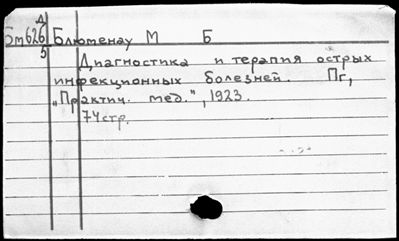 Д
Бm626 Блюменау М Б
5
Диагностика и терапия острых
инфекционных болезней. Пг,
„Практич. мед.", 1923.
74стр.